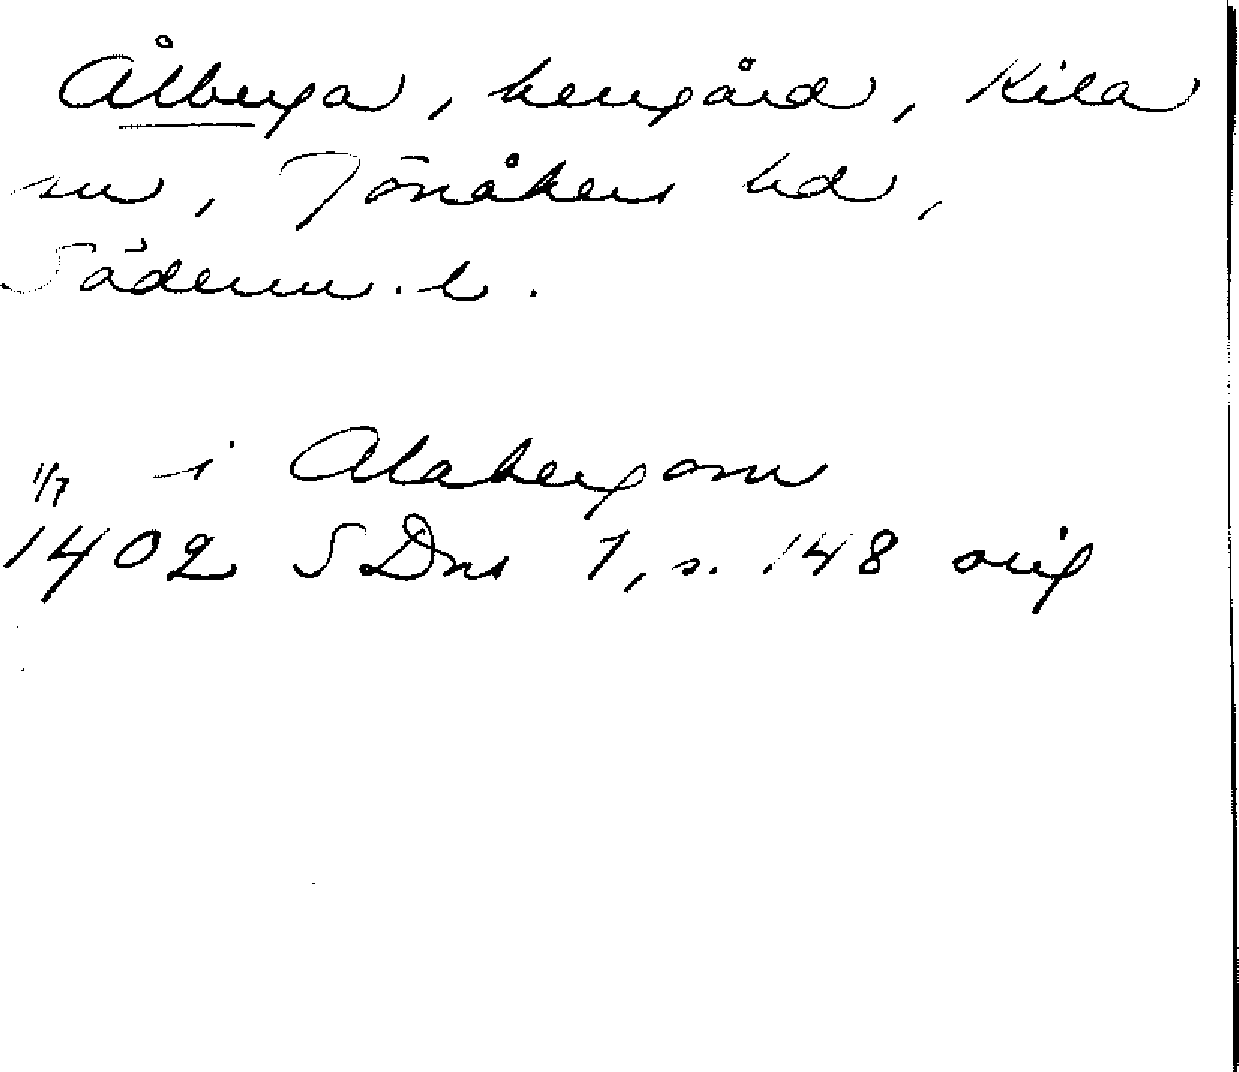 Ålberga, herrgård, Kila
sn, Jönåkers hd,
Söderm. l.
1/7 i Alabergom
1402 SDns 1, s. 148 orig